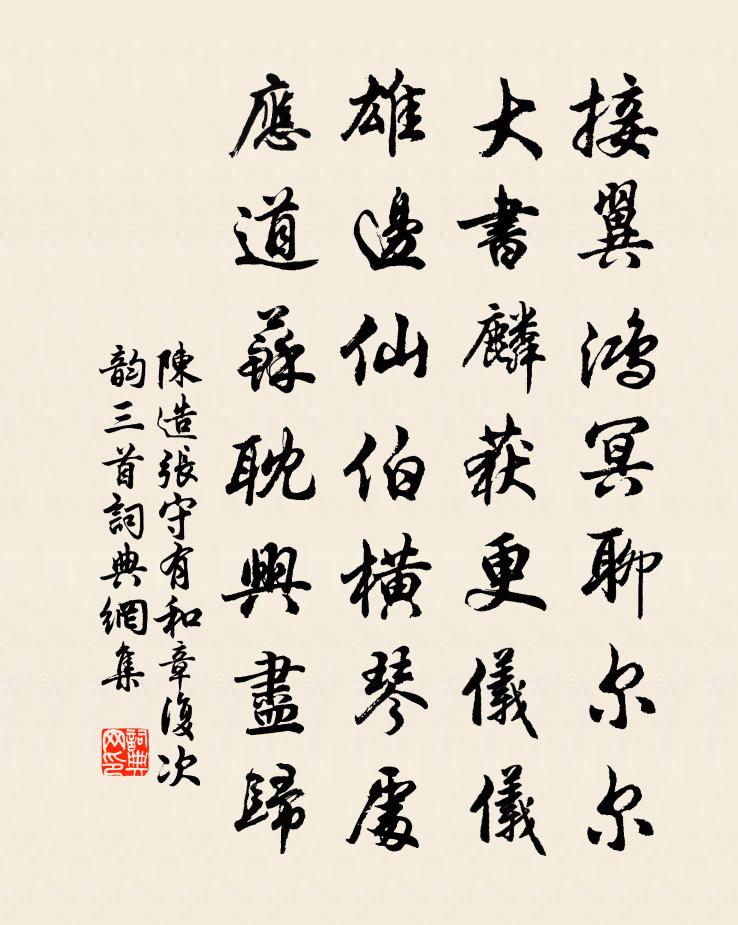 接翼鴻冥聊尔尔
大書麟获更儀儀
雄邊仙伯橫琴處
應道蘇耽興盡歸
陳造張守有和章復次
韵三首詞典網集
詞典网印